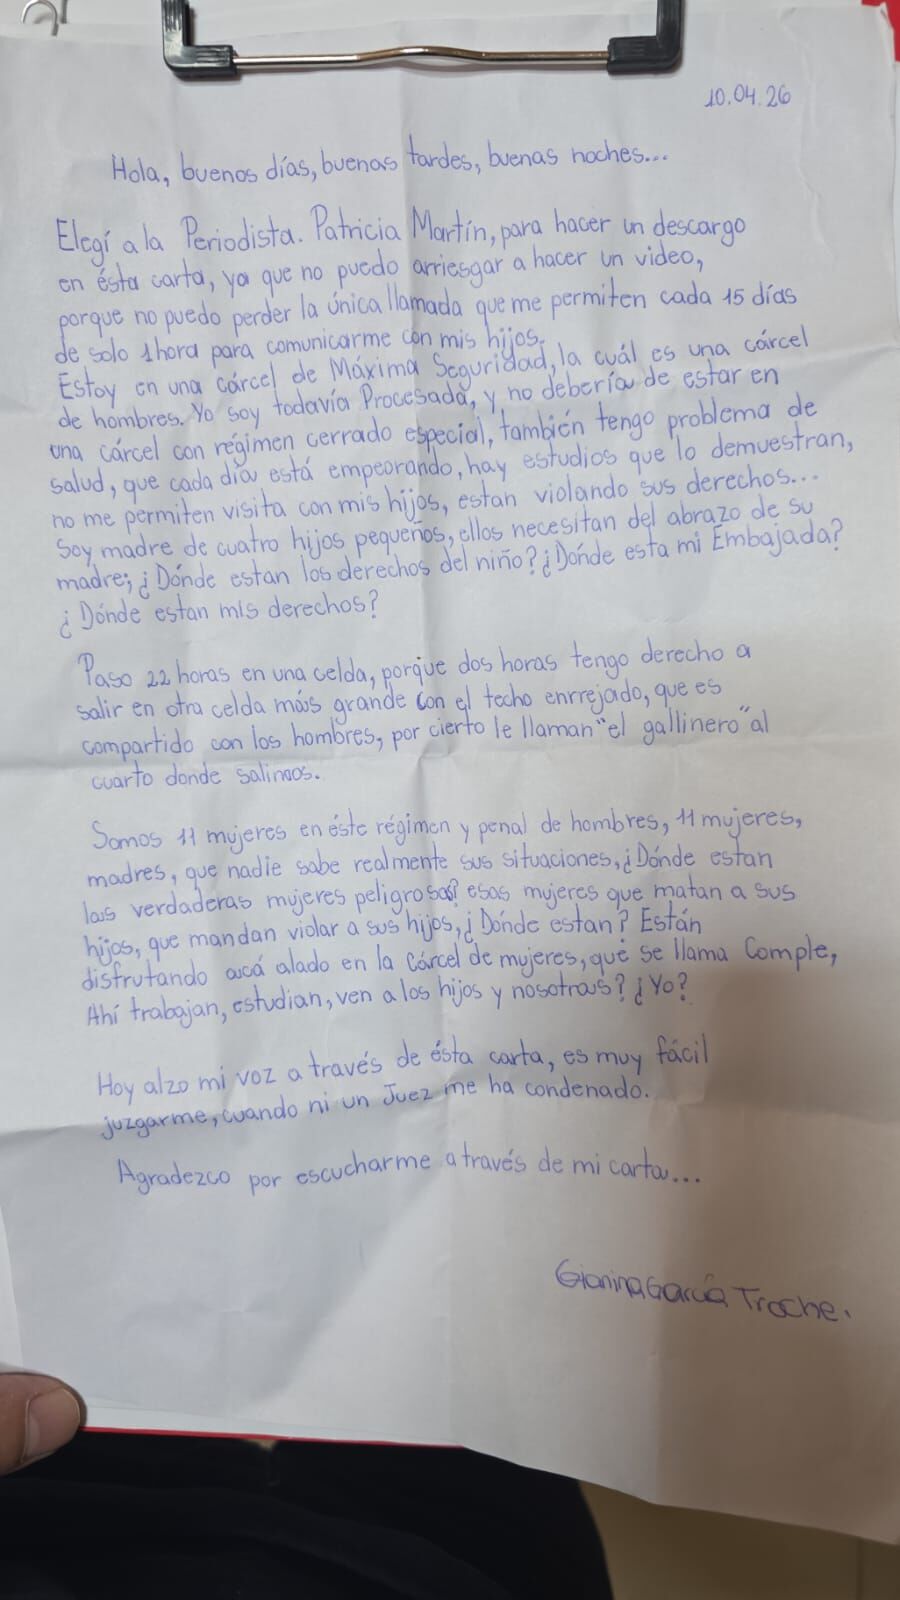 10.04.26
Hola, buenos días, buenas tardes, buenas noches...
Elegí a la Periodista. Patricia Martín, para hacer un descargo
en ésta carta, ya que no puedo arriesgar a hacer un video,
porque no puedo perder la única llamada que me permiten cada 15 días
de solo 1 hora para comunicarme con mis hijos.
Estoy en una cárcel de Máxima Seguridad, la cuál es una cárcel
de hombres. Yo soy todavía Procesada, y no debería de estar en
una cárcel con régimen cerrado especial, también tengo problema de
salud, que cada día está empeorando, hay estudios que lo demuestran,
no me permiten visita con mis hijos, estan violando sus derechos...
Soy madre de cuatro hijos pequeños, ellos necesitan del abrazo de su
madre; ¿Dónde estan los derechos del niño? ¿Dónde esta mi Embajada?
¿Dónde estan mis derechos?
Paso 22 horas en una celda, porque dos horas tengo derecho a
salir en otra celda más grande con el techo enrrejado, que es
compartido con los hombres, por cierto le llaman "el gallinero" al
cuarto donde salimos.
Somos 11 mujeres en éste régimen y penal de hombres, 11 mujeres,
madres, que nadie sabe realmente sus situaciones, ¿Dónde estan
las verdaderas mujeres peligrosas? esas mujeres que matan a sus
hijos, que mandan violar a sus hijos, ¿Dónde estan? Están
disfrutando acá alado en la Cárcel de mujeres, que se llama Comple,
Ahí trabajan, estudian, ven a los hijos y nosotras? ¿Yo?
Hoy alzo mi voz a través de ésta carta, es muy fácil
juzgarme, cuando ni un Juez me ha condenado.
Agradezco por escucharme a través de mi carta...
Gianina García Troche.